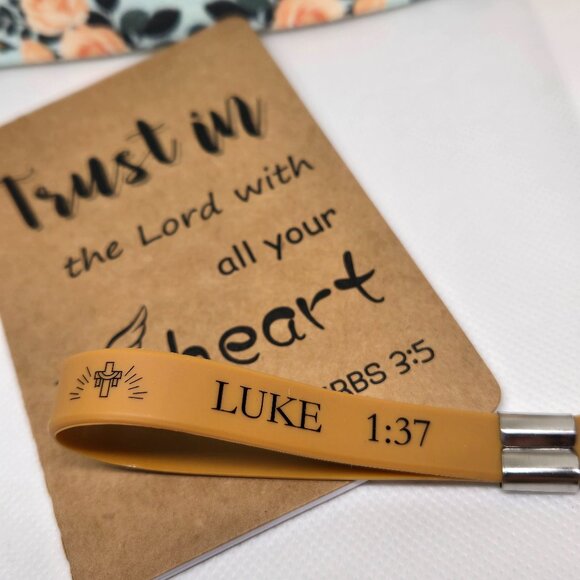 Trust in
the Lord with
all your
heart
RBS 3:5
LUKE 1:37